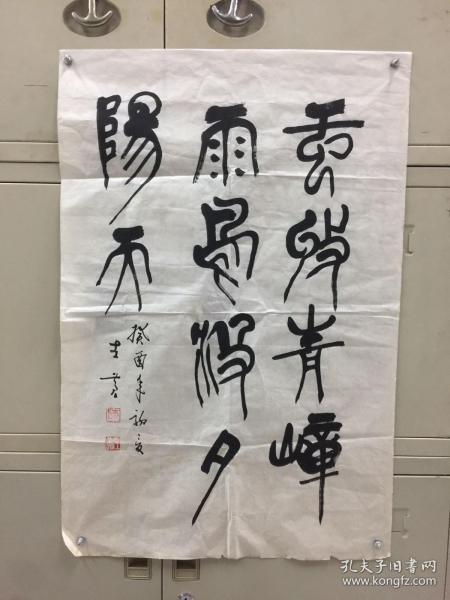 云青嶂
雨鳥没夕
陽天
癸酉年初夏
孔夫子旧书网
www.kongfz.com